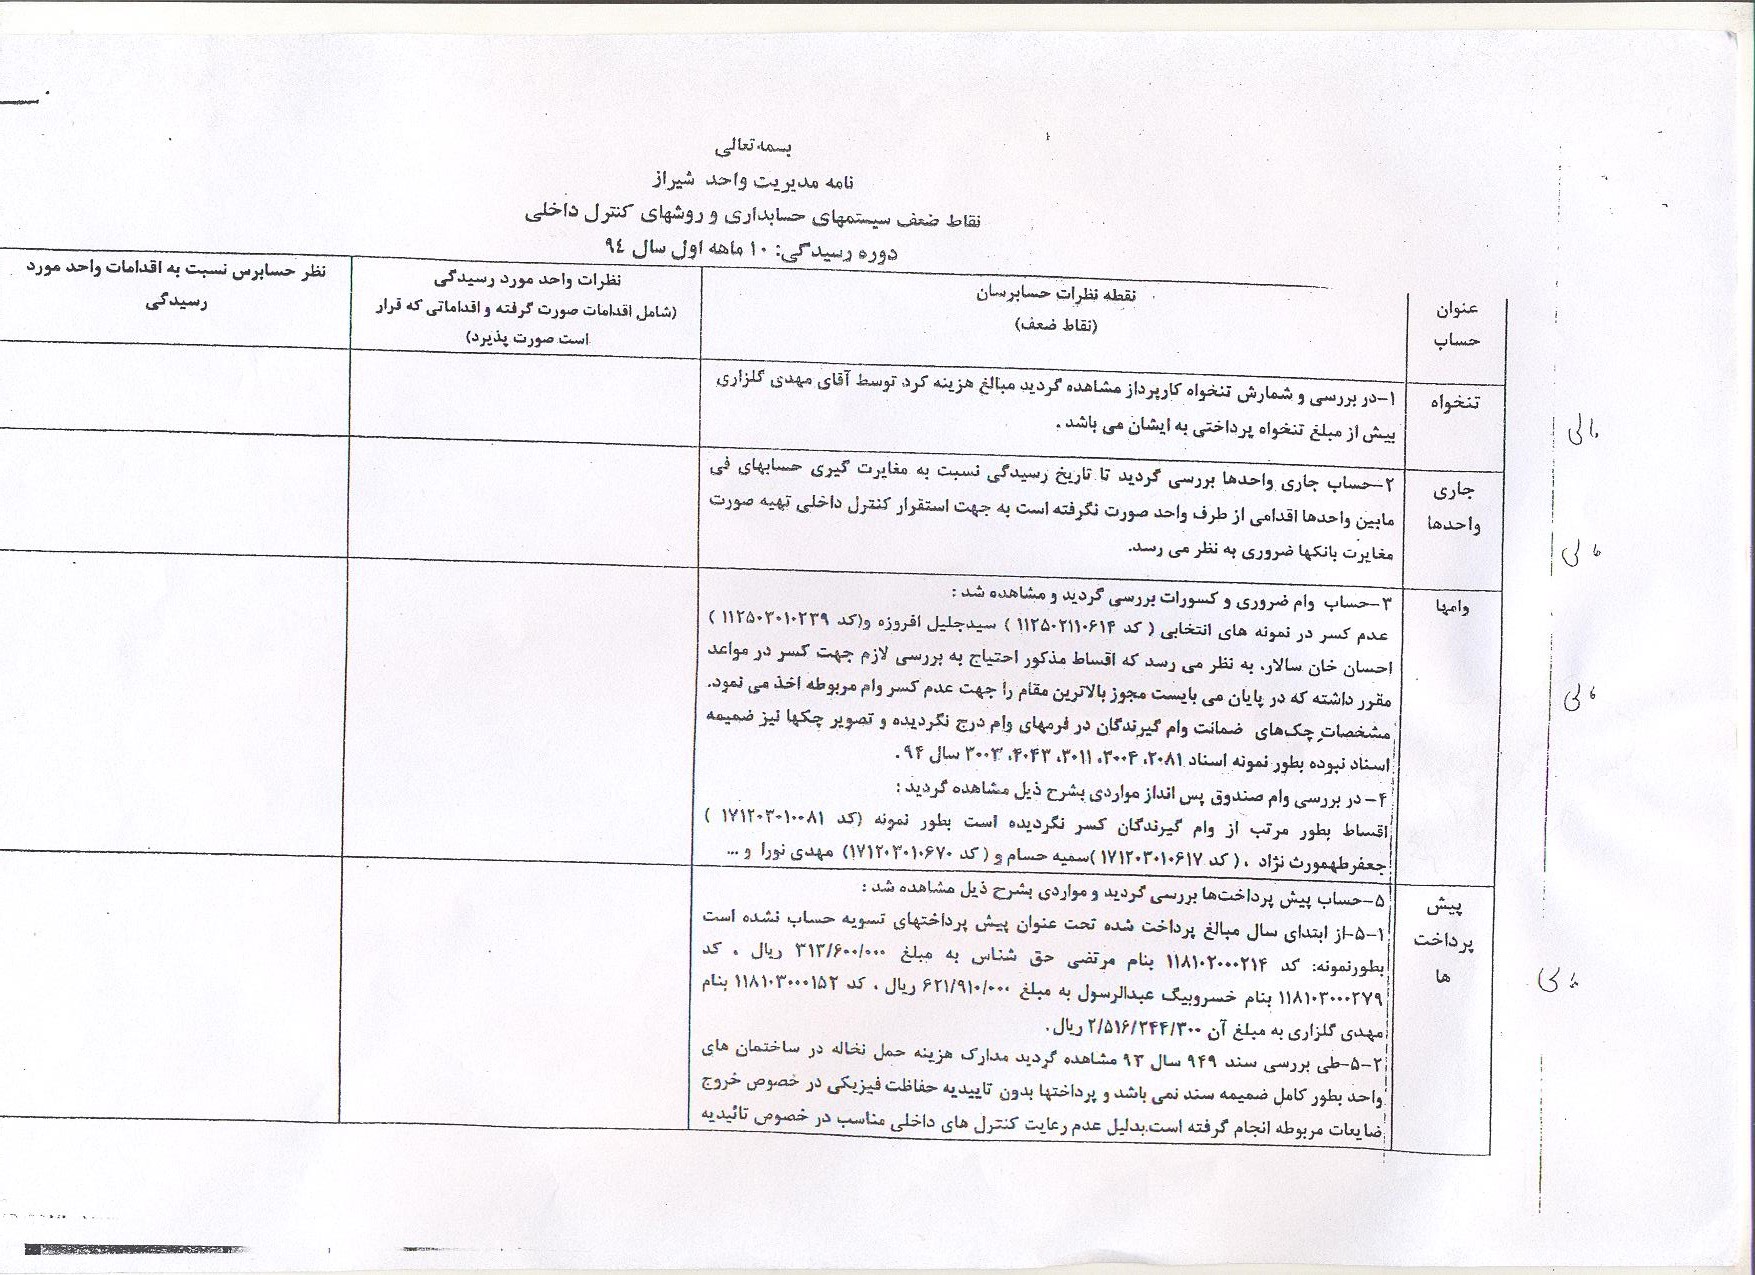 بسمه تعالی
نامه مدیریت واحد شیراز
نقاط ضعف سیستمهای حسابداری و روشهای کنترل داخلی
دوره رسیدگی: ۱۰ ماهه اول سال ۹٤
عنوان
حساب
نقطه نظرات حسابرسان
(نقاط ضعف)
نظرات واحد مورد رسیدگی
(شامل اقدامات صورت گرفته و اقداماتی که قرار
است صورت پذیرد)
نظر حسابرس نسبت به اقدامات واحد مورد
رسیدگی
تنخواه
۱-در بررسی و شمارش تنخواه کارپرداز مشاهده گردید مبالغ هزینه کرد توسط آقای مهدی گلزاری
بیش از مبلغ تنخواه پرداختی به ایشان می باشد .
مالی
جاری
واحدها
۲-حساب جاری واحدها بررسی گردید تا تاریخ رسیدگی نسبت به مغایرت گیری حسابهای فی
مابین واحدها اقدامی از طرف واحد صورت نگرفته است به جهت استقرار کنترل داخلی تهیه صورت
مغایرت بانکها ضروری به نظر می رسد.
مالی
وامها
۳-حساب وام ضروری و کسورات بررسی گردید و مشاهده شد :
عدم کسر در نمونه های انتخابی ( کد ۱۱۲۵۰۲۱۱۰۶۱۴ ) سیدجلیل افروزه و(کد ۱۱۲۵۰۳۰۱۰۲۳۹ )
احسان خان سالار، به نظر می رسد که اقساط مذکور احتیاج به بررسی لازم جهت کسر در مواعد
مقرر داشته که در پایان می بایست مجوز بالاترین مقام را جهت عدم کسر وام مربوطه اخذ می نمود.
مشخصات چک‌های ضمانت وام گیرندگان در فرمهای وام درج نگردیده و تصویر چکها نیز ضمیمه
اسناد نبوده بطور نمونه اسناد ۲۰۸۱، ۳۰۰۴، ۳۰۱۱، ۴۰۴۳، ۳۰۰۳ سال ۹۴ .
۴- در بررسی وام صندوق پس انداز مواردی بشرح ذیل مشاهده گردید :
اقساط بطور مرتب از وام گیرندگان کسر نگردیده است بطور نمونه (کد ۱۷۱۲۰۳۰۱۰۰۸۱ )
جعفرطهمورث نژاد ، ( کد ۱۷۱۲۰۳۰۱۰۶۱۷ )سمیه حسام و ( کد ۱۷۱۲۰۳۰۱۰۶۷۰) مهدی نورا و ...
مالی
پیش
پرداخت
ها
۵-حساب پیش پرداخت‌ها بررسی گردید و مواردی بشرح ذیل مشاهده شد :
۱-۵-از ابتدای سال مبالغ پرداخت شده تحت عنوان پیش پرداختهای تسویه حساب نشده است
بطورنمونه: کد ۱۱۸۱۰۲۰۰۰۲۱۴ بنام مرتضی حق شناس به مبلغ ۳۱۳/۶۰۰/۰۰۰ ریال ، کد
۱۱۸۱۰۳۰۰۰۲۷۹ بنام خسروبیگ عبدالرسول به مبلغ ۶۲۱/۹۱۰/۰۰۰ ریال ، کد ۱۱۸۱۰۳۰۰۰۱۵۲ بنام
مهدی گلزاری به مبلغ آن ۲/۵۱۶/۲۴۴/۳۰۰ ریال.
۲-۵-طی بررسی سند ۹۴۹ سال ۹۳ مشاهده گردید مدارک هزینه حمل نخاله در ساختمان های
واحد بطور کامل ضمیمه سند نمی باشد و پرداختها بدون تاییدیه حفاظت فیزیکی در خصوص خروج
ضایعات مربوطه انجام گرفته است.بدلیل عدم رعایت کنترل های داخلی مناسب در خصوص تائیدیه